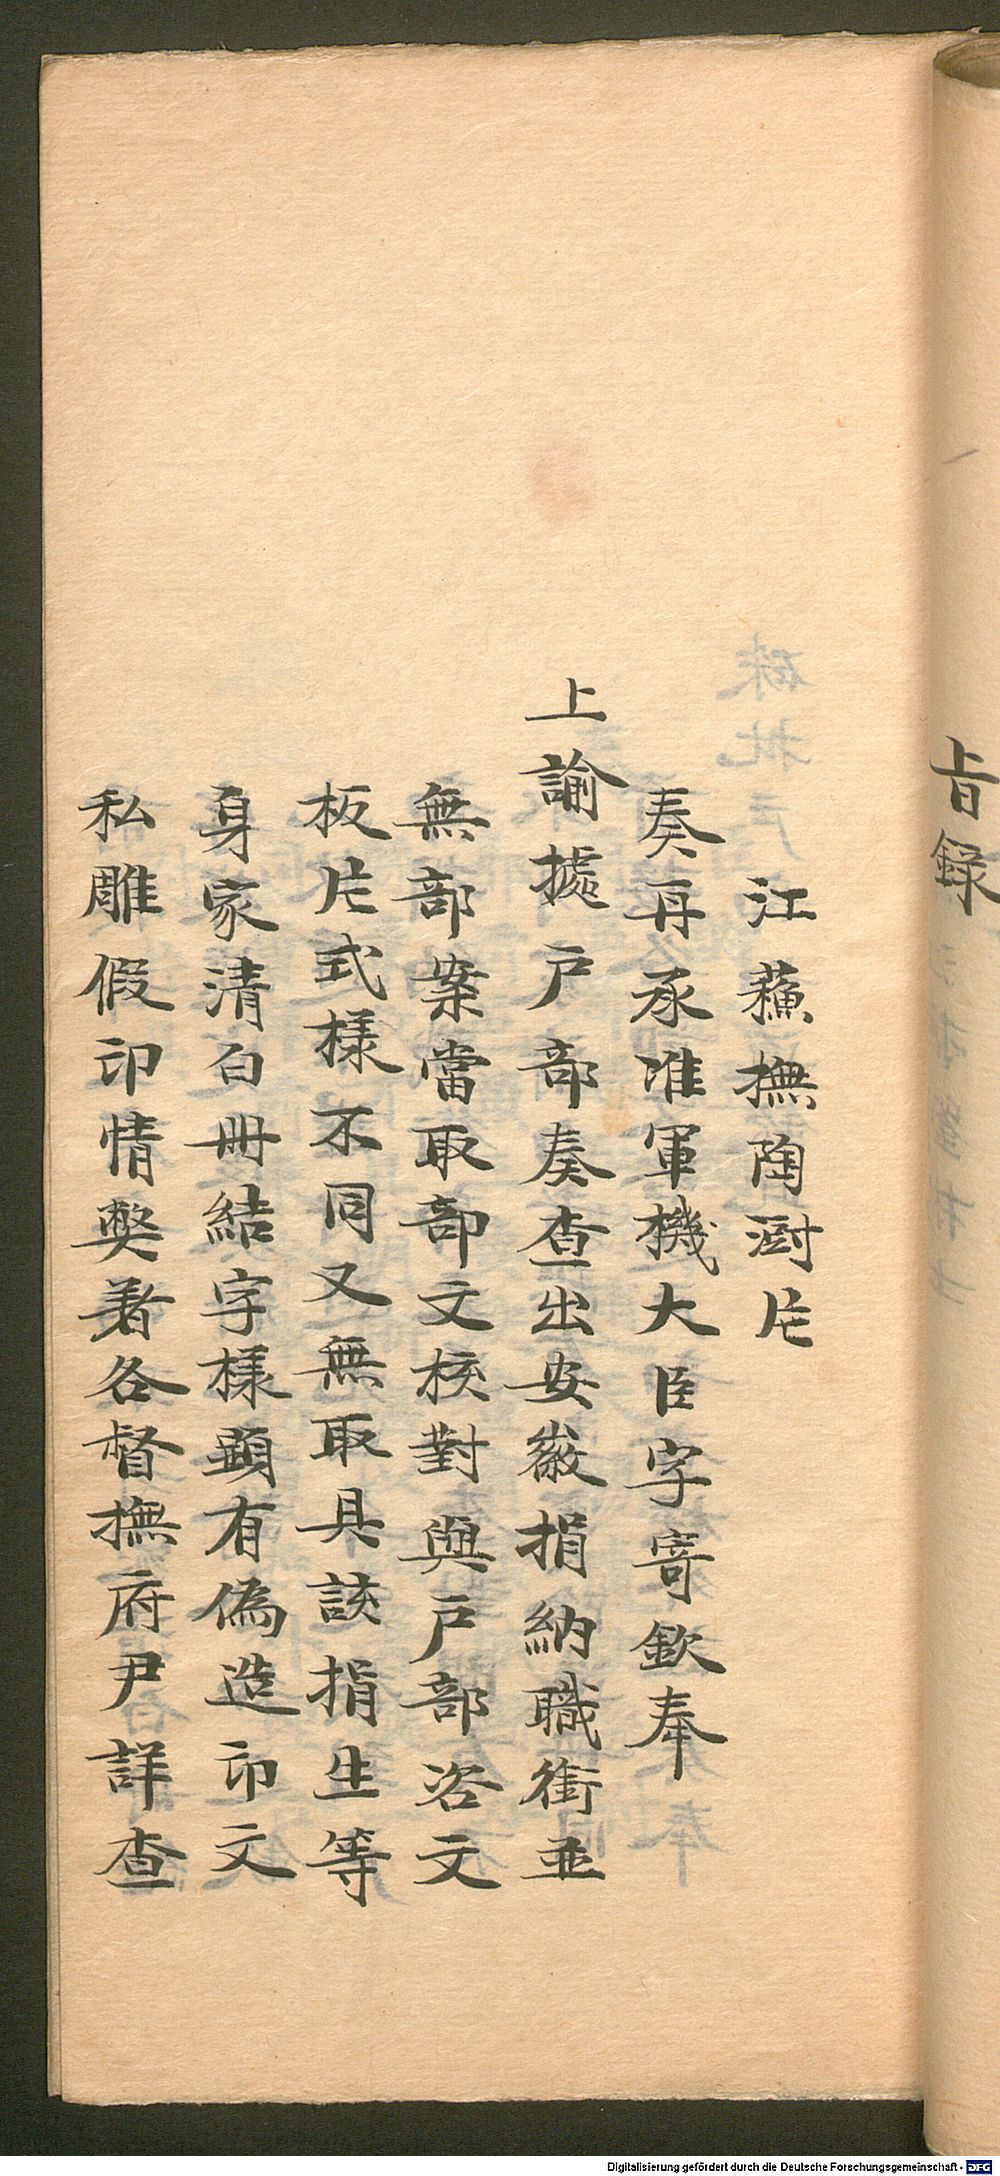 旨録
江蘇撫陶澍片
奏再承准軍機大臣字寄欽奉
上諭據戶部奏查出安徽捐納職銜並
無部案當取部文校對與戶部咨文
板片式樣不同又無取具該捐生等
身家清白冊結字樣顯有偽造印文
私雕假印情獘着各督撫府尹詳查
Digitalisierung gefördert durch die Deutsche Forschungsgemeinschaft - DFG